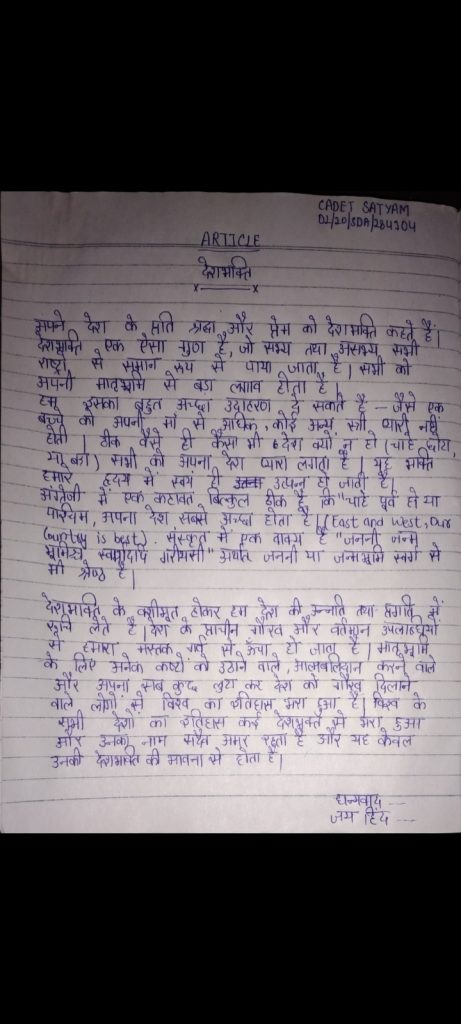 CADET SATYAM
DL/20/SDA/284304
ARTICLE
देशभक्ति
अपने देश के प्रति श्रद्धा और प्रेम को देशभक्ति कहते हैं।
देशभक्ति एक ऐसा गुण है, जो सभ्य तथा असभ्य सभी
राष्ट्रो में समान रूप से पाया जाता है। सभी को
अपनी मातृभूमि से बड़ा लगाव होता है।
हम इसका बहुत अच्छा उदाहरण दे सकते है – जैसे एक
बच्चे को अपनी माँ से अधिक कोई अन्य स्त्री प्यारी नही
होती। ठीक वैसे ही कैसा भी देश क्यो न हो (चाहे छोटा,
या बड़ा) सभी को अपना देश प्यारा लगता है। यह भक्ति
हमारे हृदय में स्वयं ही उत्पन्न हो जाती है।
अंग्रेजी में एक कहावत बिल्कुल ठीक है कि "चाहे पूर्व हो या
पश्चिम, अपना देश सबसे अच्छा होता है। (East and West, Our
Country is best). संस्कृत में एक वाक्य है "जननी जन्म
भूमिश्च स्वर्गादपि गरीयसी" अर्थात जननी या जन्मभूमि स्वर्ग से
भी श्रेष्ठ है।
देशभक्ति के वशीभूत होकर हम देश की उन्नति तथा प्रगति में
रूचि लेते है। देश के प्राचीन गौरव और वर्तमान उपलब्धियों
से हमारा मस्तक गर्व से ऊँचा हो जाता है। मातृभूमि
के लिए अनेक कष्टो को उठाने वाले, आत्मबलिदान करने वाले
और अपना सब कुछ लुटा कर देश को गौरव दिलाने
वाले लोगों से विश्व का इतिहास भरा हुआ है। विश्व के
सभी देशो का इतिहास कई देशभक्तो से भरा हुआ
और उनका नाम सदैव अमर रहता है और यह केवल
उनकी देशभक्ति की भावना से होता है।
धन्यवाद ---
जय हिंद ---